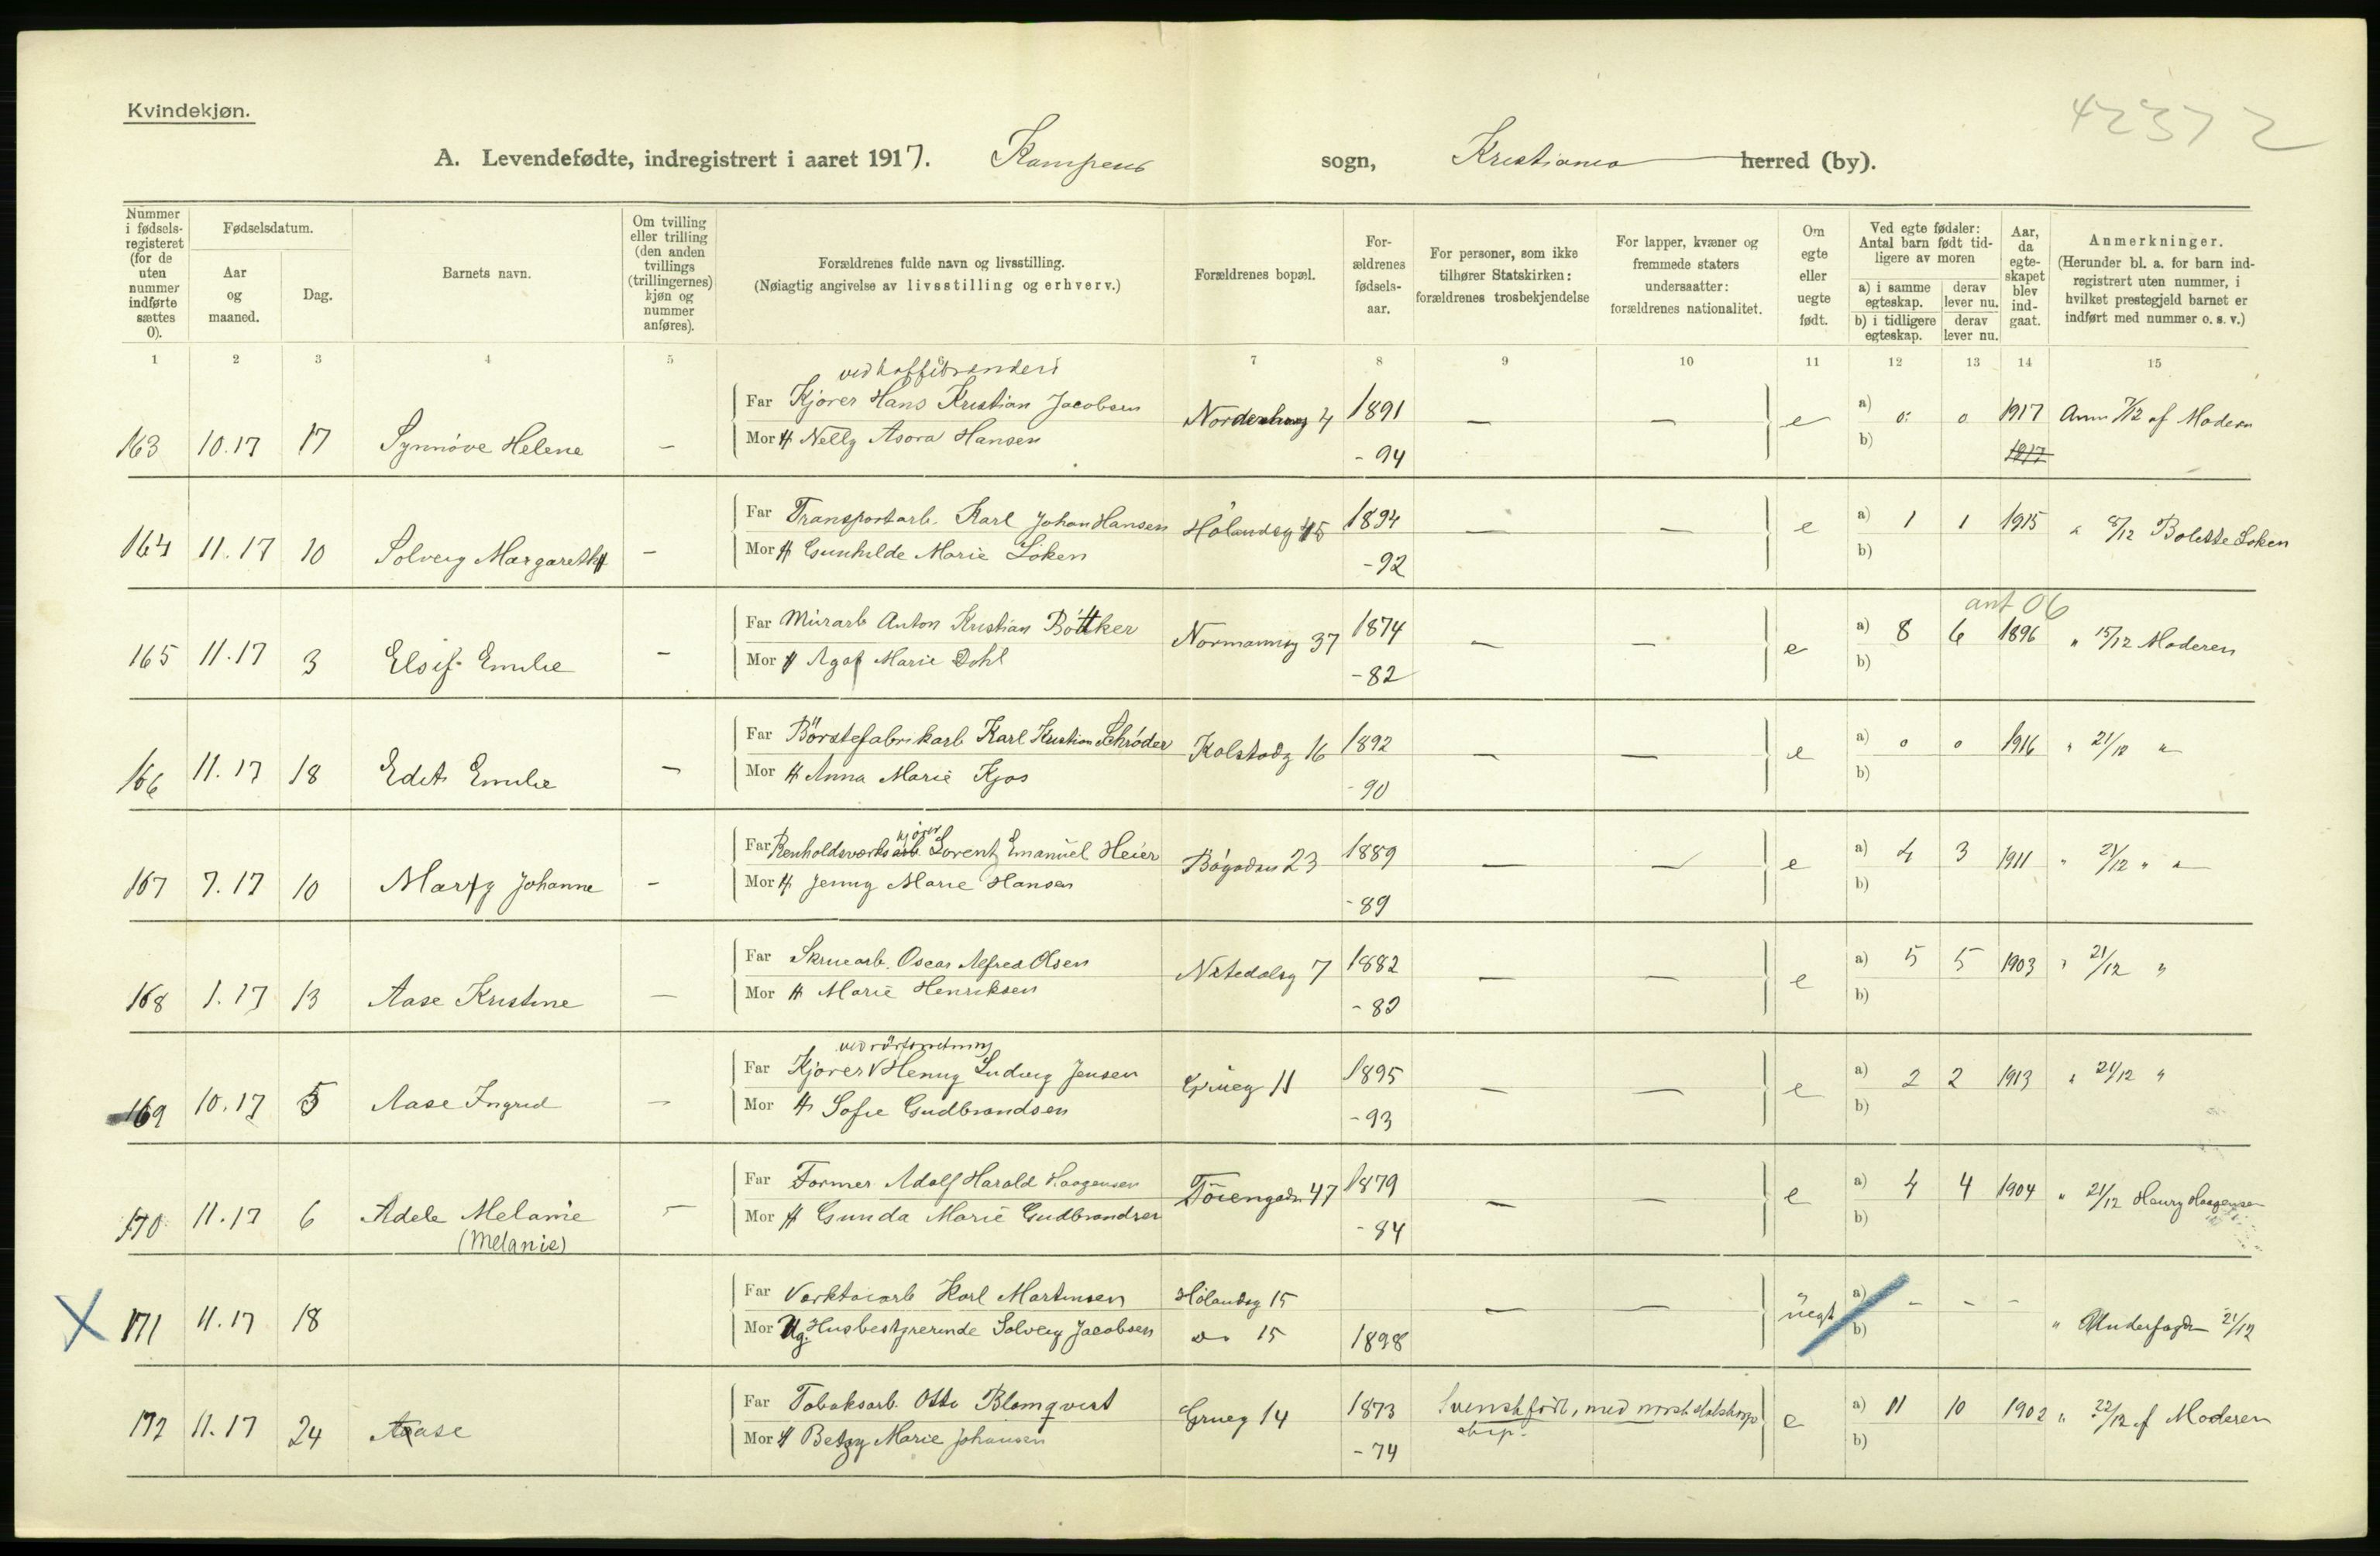 Kvindekjøn.
42372
A. Levendefødte, indregistrert i aaret 1917. Kampens sogn, Kristiania herred (by).
Nummer i fødselsregisteret (for de uten nummer indførte sættes 0).
Fødselsdatum.
Aar og maaned.
Dag.
Barnets navn.
Om tvilling eller trilling (den anden tvillings (trillingernes) kjøn og nummer anføres).
Forældrenes fulde navn og livsstilling.
(Nøiagtig angivelse av livsstilling og erhverv.)
Forældrenes bopæl.
Forældrenes fødselsaar.
For personer, som ikke tilhører Statskirken: forældrenes trosbekjendelse
For lapper, kvæner og fremmede staters undersaatter: forældrenes nationalitet.
Om egte eller uegte født.
Ved egte fødsler: Antal barn født tidligere av moren
a) i samme egteskap. derav lever nu.
b) i tidligere egteskap. derav lever nu.
Aar, da egteskapet blev indgaat.
Anmerkninger.
(Herunder bl. a. for barn indregistrert uten nummer, i hvilket prestegjeld barnet er indført med nummer o. s. v.)
1 2 3 4 5 6 7 8 9 10 11 12 13 14 15
ved kaffebrænderi
Far Kjører Hans Kristian Jacobsen 4 1891 a) 0 0 1917 Anm 7/12 af Moderen
163 10.17 17 Synnøve Helene – Mor H Nelly Asora Hansen - 94 — — e b) 1917
Far Transportarb. Karl Johan Hansen Hölandsg 15 1894 a) 1 1 1915 " 8/12 Bolette Løken
164 11.17 10 Solveig Margareth – Mor H Gunhilde Marie Løken - 92 — — e b)
ant 06
Far Murarb Anton Kristian Bøttker Normannsg 37 1874 a) 8 6 1896 " 15/12 Moderen
165 11.17 3 Emilie – Mor H Agaf Marie Dohl - 82 — — e b)
Far Børstefabrikarb Karl Kristian Schrøder Kolstadg 16 1892 a) 0 0 1916 " 21/12 "
166 11.17 18 Edit Emilie – Mor H Anna Marie Kjos - 90 — — e b)
kjører
Far Renholdsverks arb. Lorentz Emanuel Heier Bøgaden 23 1889 a) 4 3 1911 " 21/12 " "
167 7.17 10 Mary Johanne – Mor H Jenny Marie Hansen - 89 — — e b)
Far Skruearb. Oscar Alfred Olsen Nitedalsg 7 1882 a) 5 5 1903 " 21/12 "
168 1.17 13 Aase Kristine – Mor H Marie Henriksen - 82 — — e b)
ved rörforretning
Far Kjører V Henry Ludvig Jensen Grüeg 11 1895 a) 2 2 1913 " 21/12 "
169 10.17 5 Aase Ingrid – Mor H Sofie Gudbrandsen - 93 — — e b)
Far Former Adolf Harald Haagensen Töiengadn 47 1879 a) 4 4 1904 " 21/12 Henry Haagensen
170 11.17 6 Adele Melanie – Mor H Gunda Marie Gudbrandsen - 84 — — e b)
(Melanie)
Far Verktøiarb Karl Martinsen Hölandsg 15 — — uegt a) - - -
X 171 11.17 18 Mor Ug. Husbestyrerinde Solveig Jacobsen do 15 1898 b) " 21/12
Far Tobaksarb. Otto Blomqvist Grüeg 14 1873 Svenskfødt, med norsk e a) 11 10 1902 " 22/12 af Moderen
172 11.17 24 Aase Mor H Betzy Marie Johansen - 74 b)